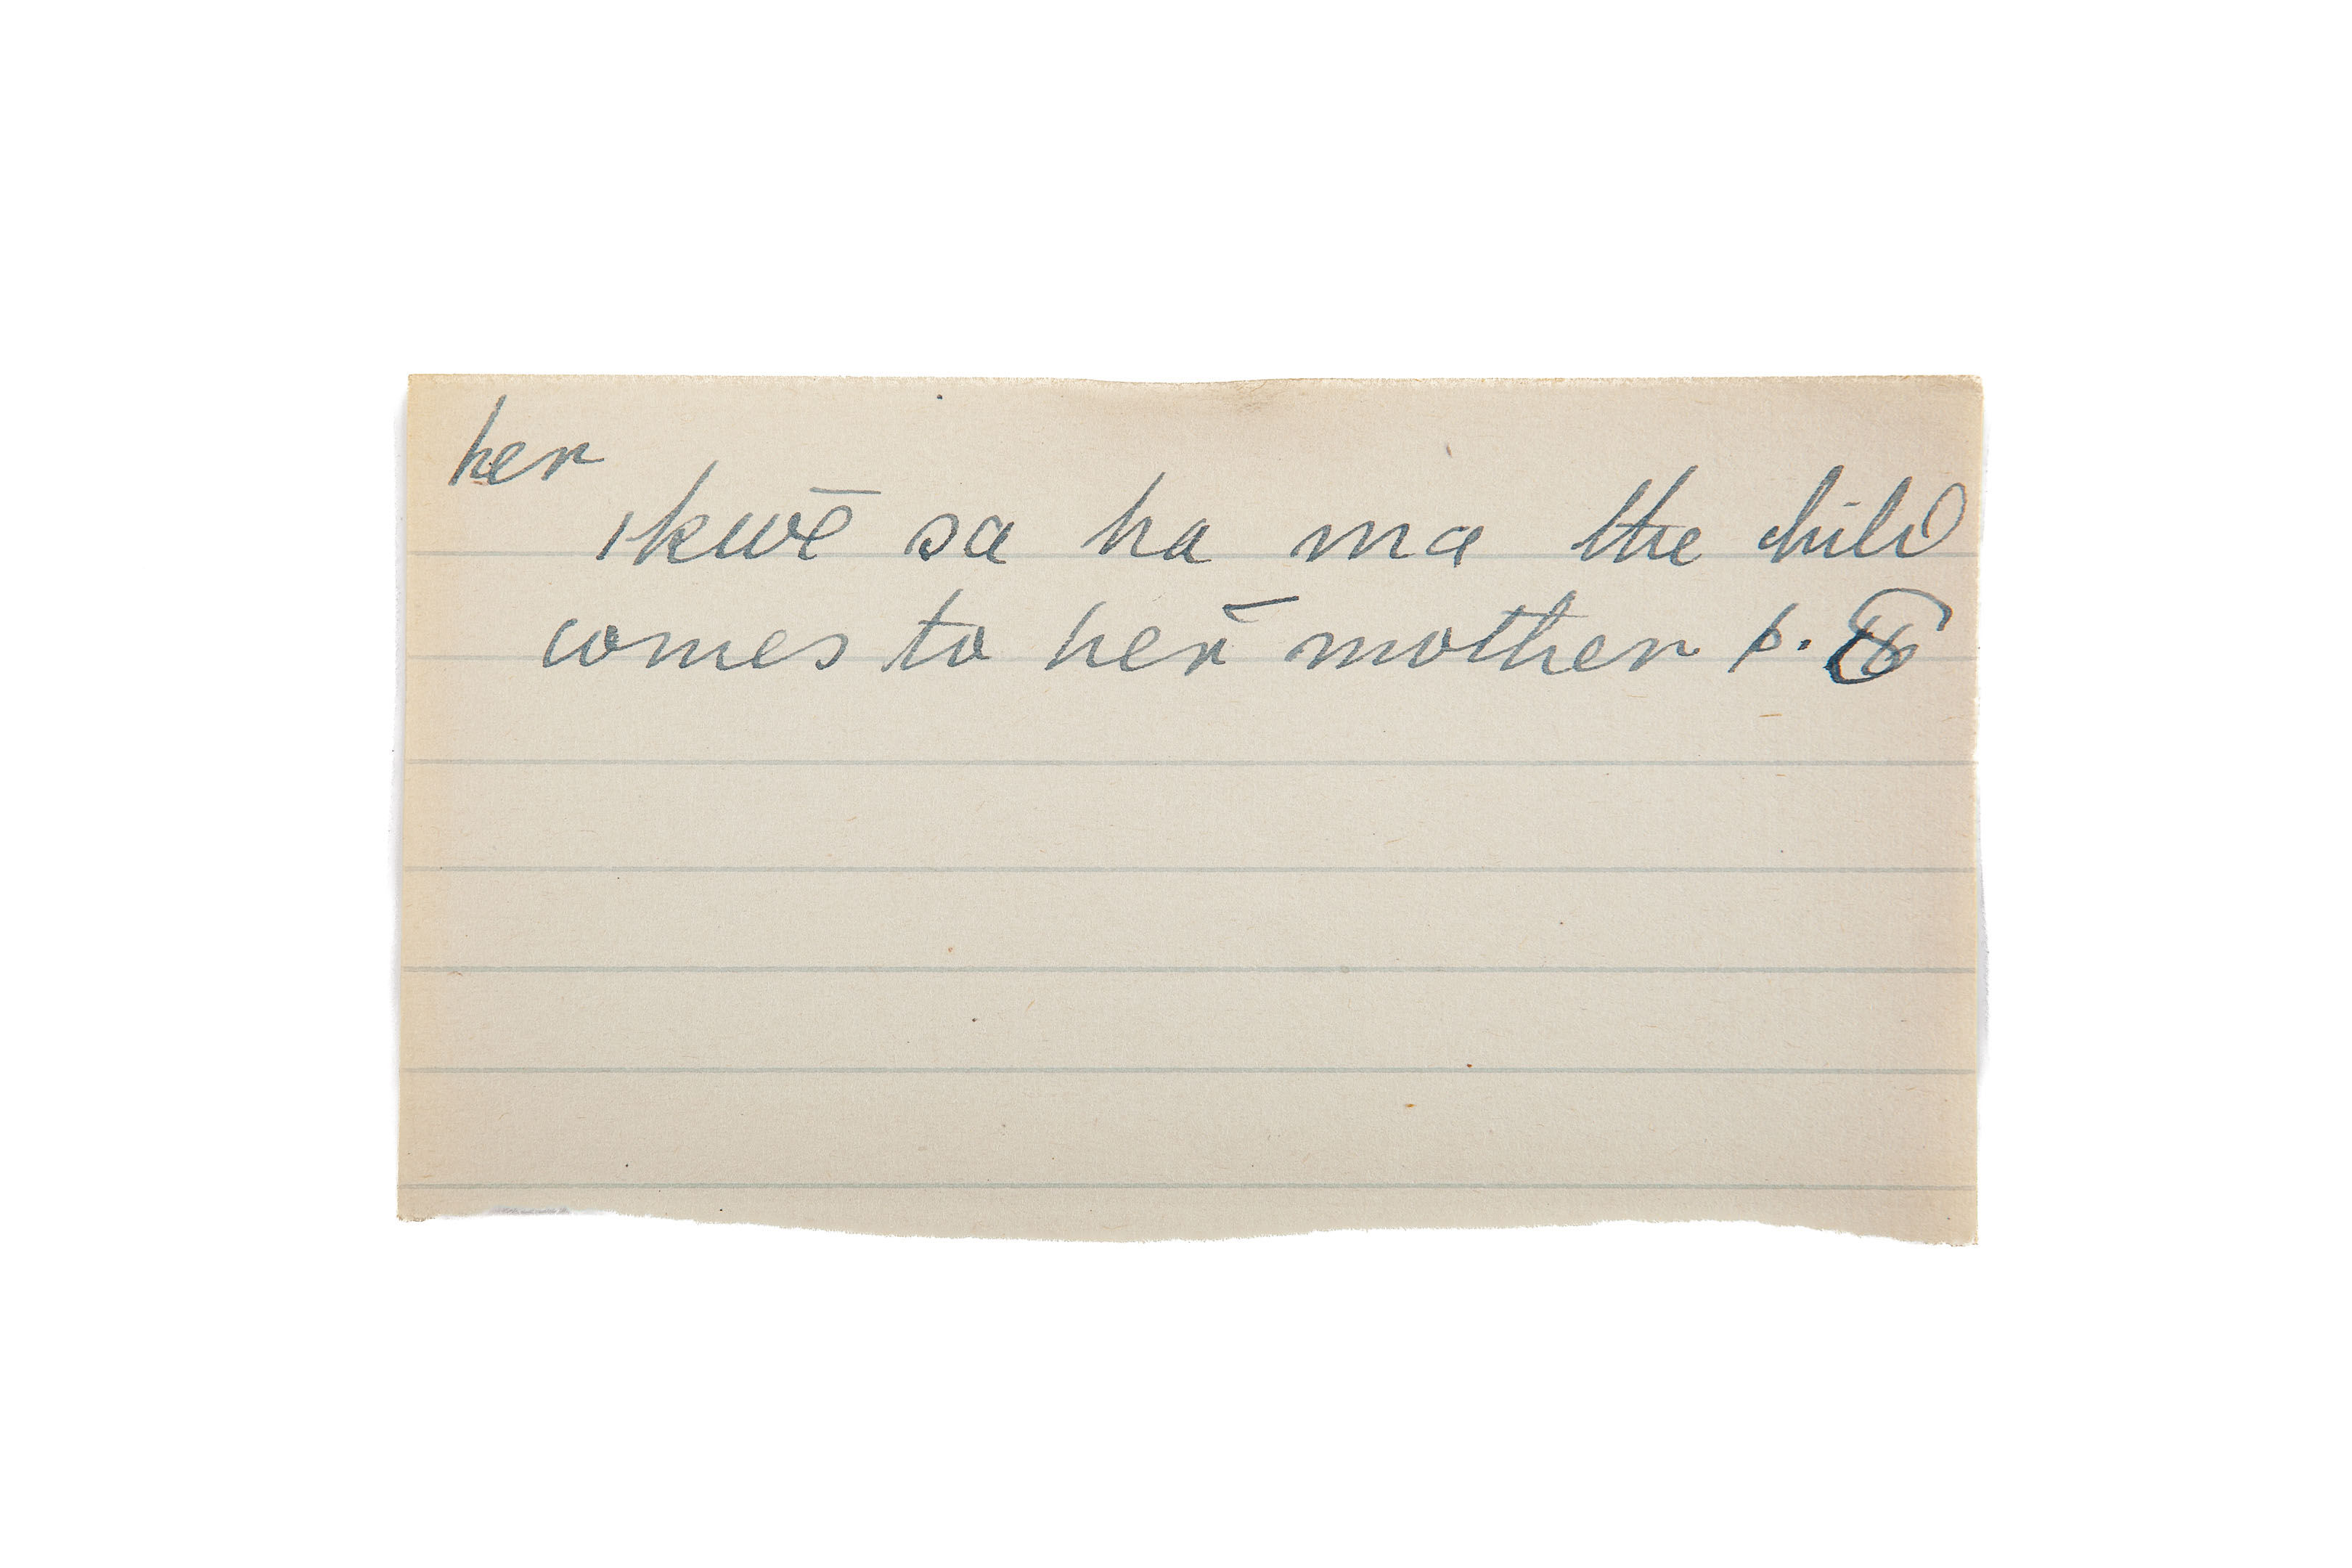 her
ikwē sa ha ma the child
comes to her mother p.